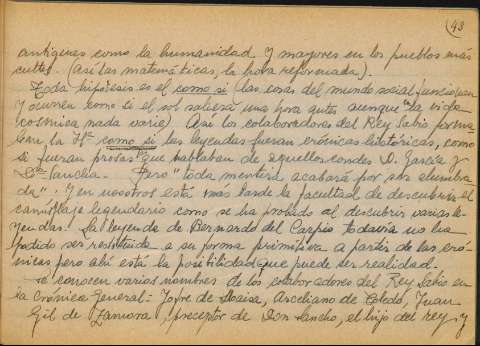 (43
antiguas como la humanidad y mayores en los pueblos más
cultos. (así las matemáticas, la hora reformada).
Toda hipótesis es el como si (las cosas del mundo social funcionan
y ocurren como si el sol saliera una hora antes aunque la vida
cósmica nada varíe) Así los colaboradores del Rey Sabio forma
ban la Hª como si las leyendas fueran crónicas históricas, como
si fueran prosas que hablaban de aquellos condes D. García y
Dª Sancha. Pero "toda mentira acabará por ser
da". Y en nosotros está más tarde la facultad de descubrir el
camuflaje legendario como se ha probado al descubrir varias le-
yendas. La leyenda de Bernardo del Carpio todavía no ha
podido ser restituida a su forma primitiva a partir de las cró
nicas pero ahí está la posibilidad que puede ser realidad.
Se conocen varios nombres de los colaboradores del Rey Sabio en
la Crónica General: Jofre de Loaisa, de Toledo, Juan
Gil de Zamora, preceptor de Don Sancho, el hijo del rey y